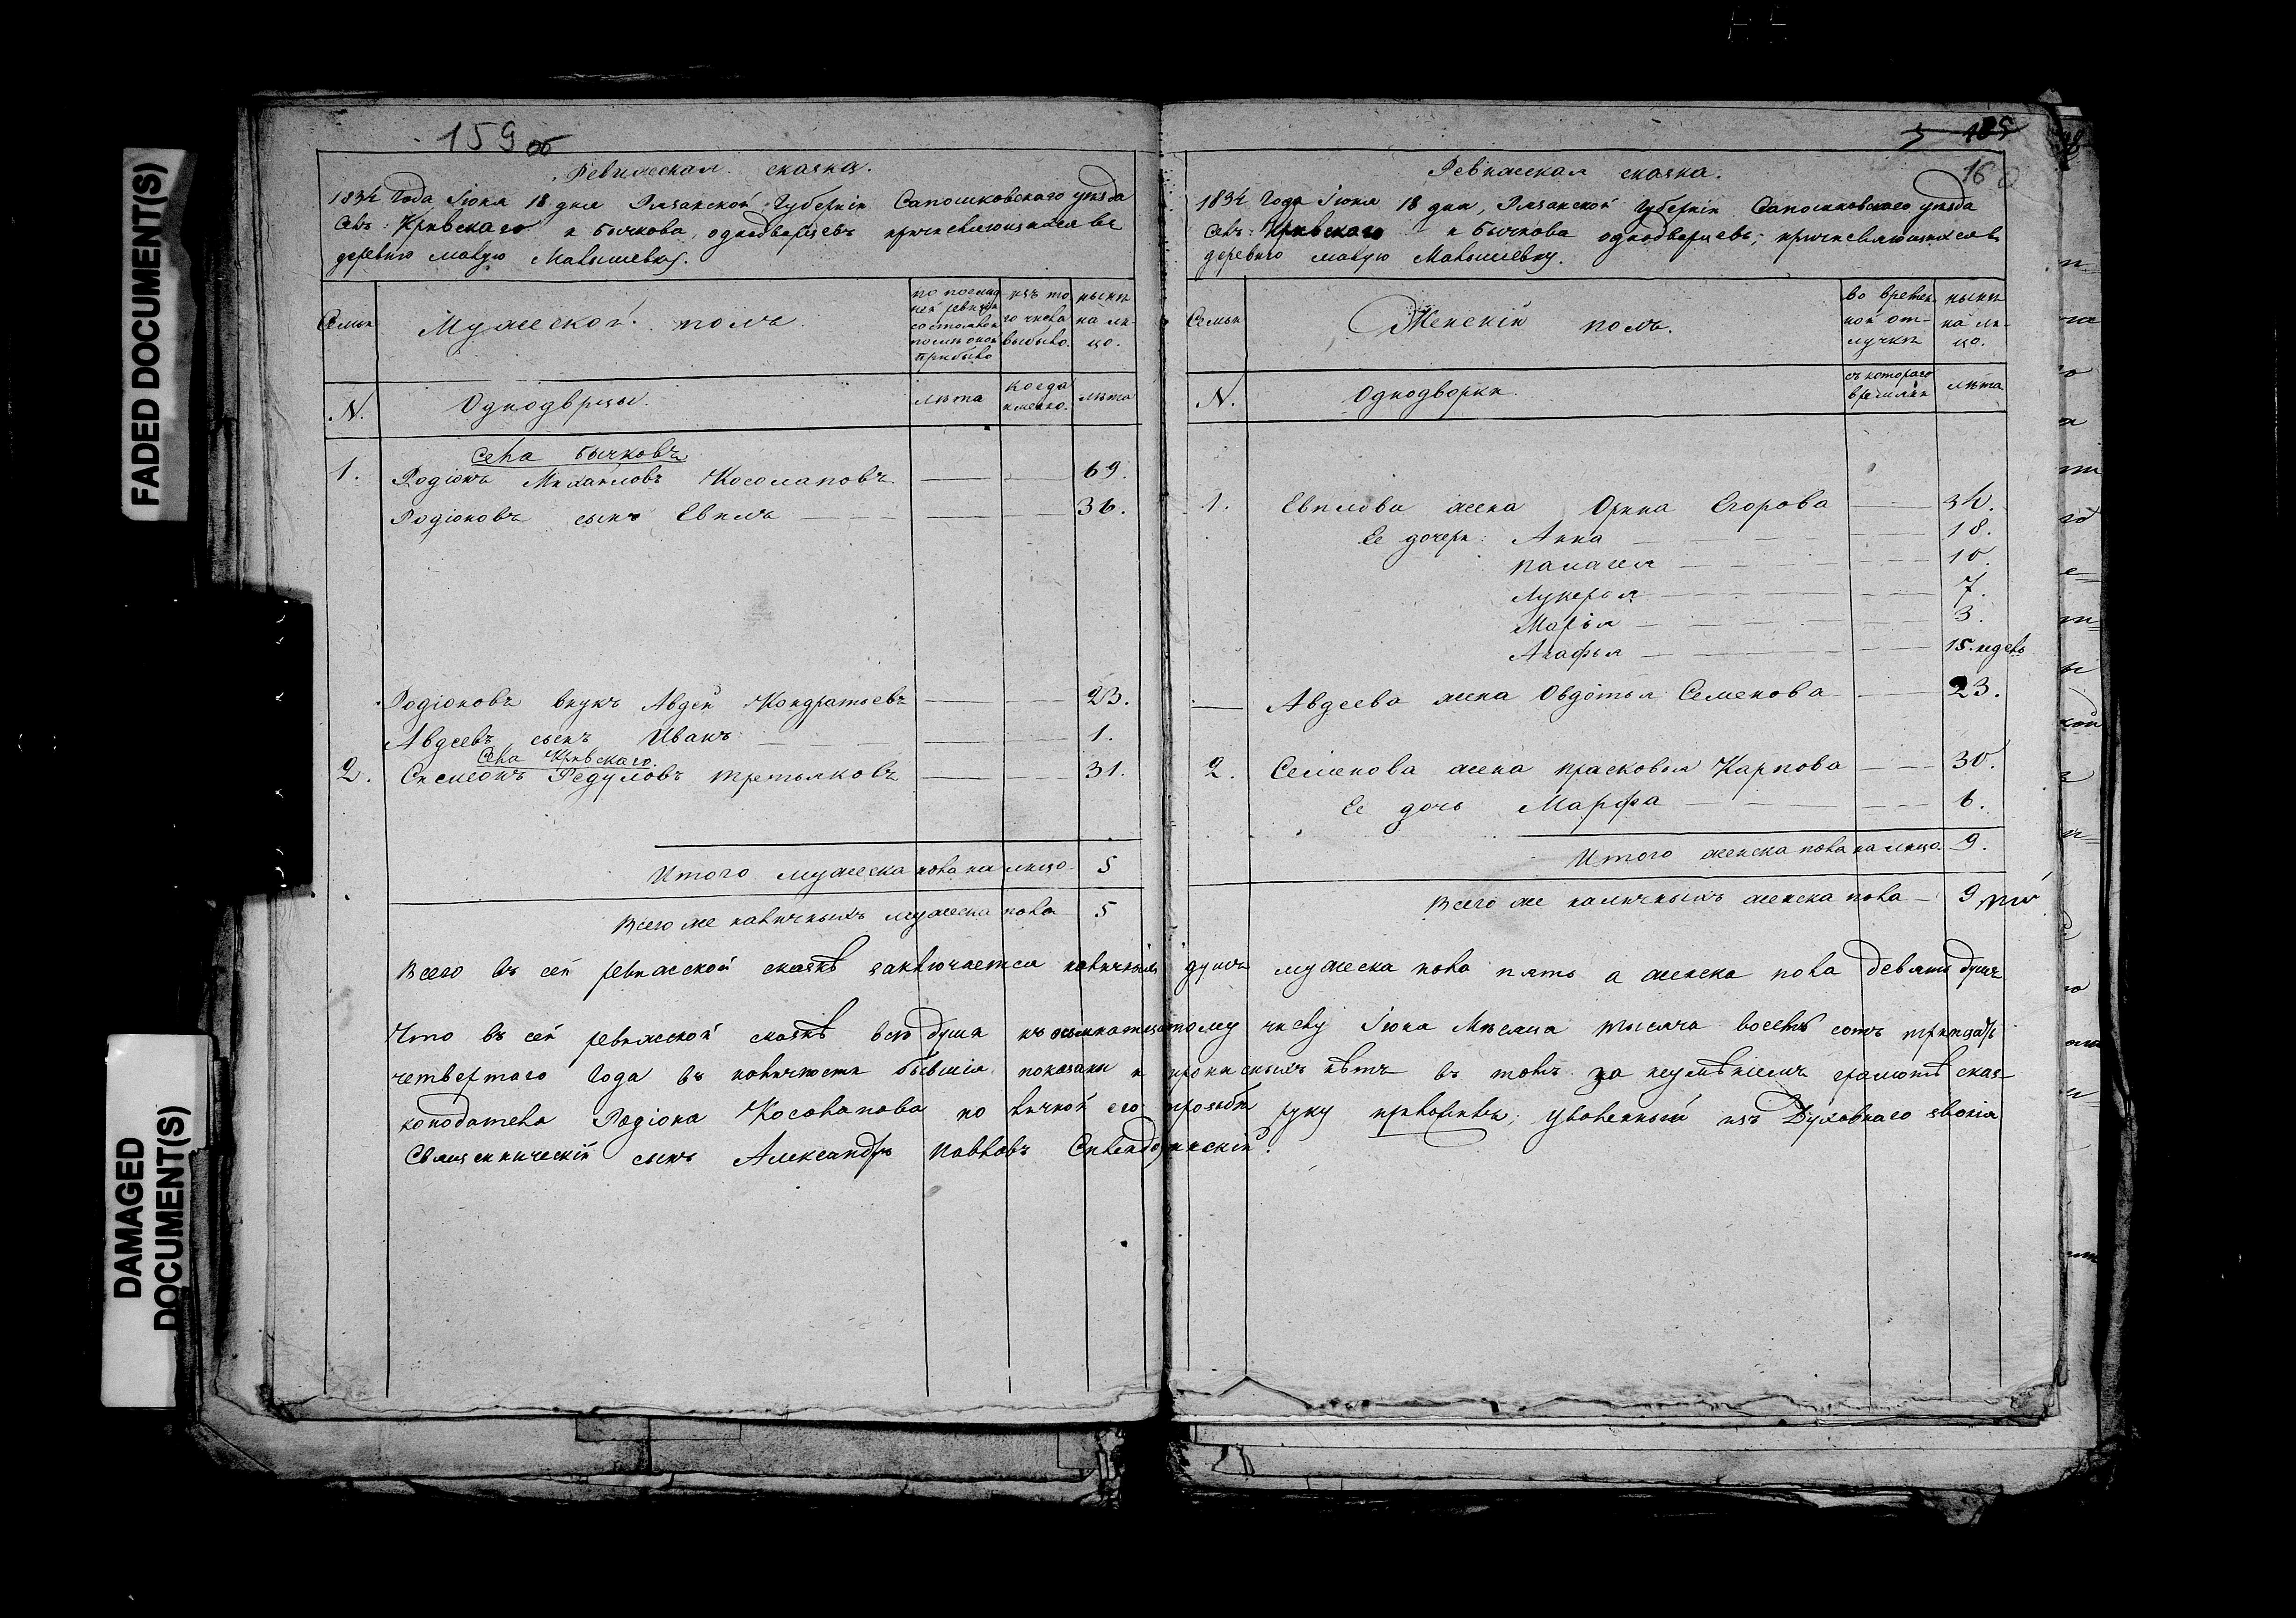 FADED DOCUMENT(S)
DAMAGED DOCUMENT(S)
159 об
Ревижская сказка.
1834 года Іюня 18 дня Рязанской Губерніи Сапожковского уезда
Селъ: Кривскаго и Бычкова, однодворцевъ причисляющихся въ
деревню малую Малышевку.
Семьи
Мужеской полъ.
по последней ревизіи состояло и после оной прибыло
изъ того числа выбыло.
ныне на лицо.
N.
Однодврцы.
лѣта
когда именно.
лѣта
Села Бычковъ
1. Родіонъ Михайловъ Косолаповъ 69.
Родіоновъ сынъ Евилъ 36.
Родіоновъ внукъ Авдей Кондратьевъ 23.
Авдеевъ сынъ Иванъ 1.
Села Кривскаго.
2. Симеонъ Федуловъ Третьяковъ 31.
Итого мужеска пола на лицо 5
Всего же наличныхъ мужеска пола 5
160
Ревижская сказка.
1834 Года Іюня 18 дня, Рязанской Губерніи Сапожковскаго уезда
Селъ: Кривскаго и Бычкова однодворцевъ, причисляющихся въ
деревню малую Малышевку.
Семьи
Женскій полъ.
во временной отлучке
ныне на лицо.
N.
Однодворки.
съ котораго времяни
лѣта
1. Евилова жена Орина Егорова 34.
Ее дочери: Анна 18.
Палагея 10.
Лукерья 7.
Марья 3.
Агафья 15. недель
Авдеева жена Овдотья Семенова 23.
2. Семенова жена Прасковья Карпова 30.
Ее дочь Марфа 6.
Итого женска пола на лицо. 9.
Всего же наличныхъ женска пола 9
Всего въ сей ревижской сказкѣ заключается наличныхъ душъ мужеска пола пять а женска пола девять душъ
Что въ сей ревижской сказкѣ все души къ осьмнатцатому числу Іюня Месяца тысяча восемь сотъ тритцать
четвертаго года въ наличности бывшія показаны и прописныхъ нѣтъ въ томъ за неумѣніемъ грамотѣ сказ-
коподателя Родіона Косолапова по личной его прозьбе руку приложилъ, уволенный изъ Духовнаго званія
Священническій сынъ Александръ Павловъ